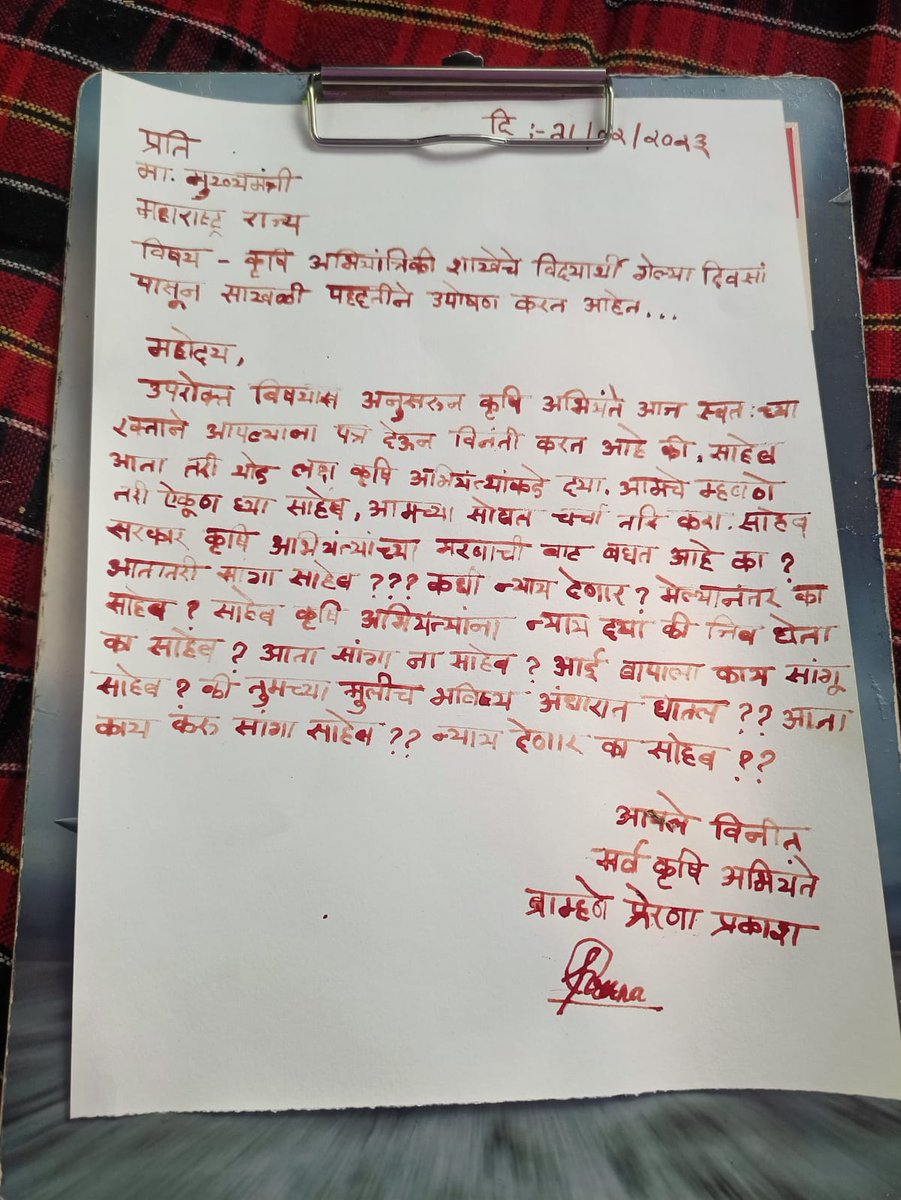 दि :- २१/०२/२०२३
प्रति
मा. मुख्यमंत्री
महाराष्ट्र राज्य
विषय - कृषि अभियांत्रिकी शाखेचे विद्यार्थी गेल्या दिवसां
पासून साखळी पद्दतीने उपोषण करत आहेत...
महोदय,
उपरोक्त विषयास अनुसरून कृषि अभियंते आज स्वत:च्या
रक्ताने आपल्याना पत्र देऊन विनंती करत आहे की, साहेब
आता तरी थोड लक्ष कृषि अभियंत्यांकडे दया. आमचे म्हणणे
तरी ऐकूण घ्या साहेब, आमच्या सोबत चर्चा तरि करा. साहेब
सरकार कृषि अभियंत्यांच्या मरणाची वाट बघत आहे का ?
आतातरी सांगा साहेब ??? कधी न्याय देणार ? मेल्यानंतर का
साहेब ? साहेब कृषि अभियंत्यांना न्याय दया की जिव घेता
का साहेब ? आता सांगा ना साहेब ? आई बापाला काय सांगू
साहेब ? की तुमच्या मुलीच भविष्य अंधारात घातल ?? आता
काय करु सांगा साहेब ?? न्याय देणार का साहेब ??
आपले विनीत
सर्व कृषि अभियंते
ब्राम्हणे प्रेरणा प्रकाश